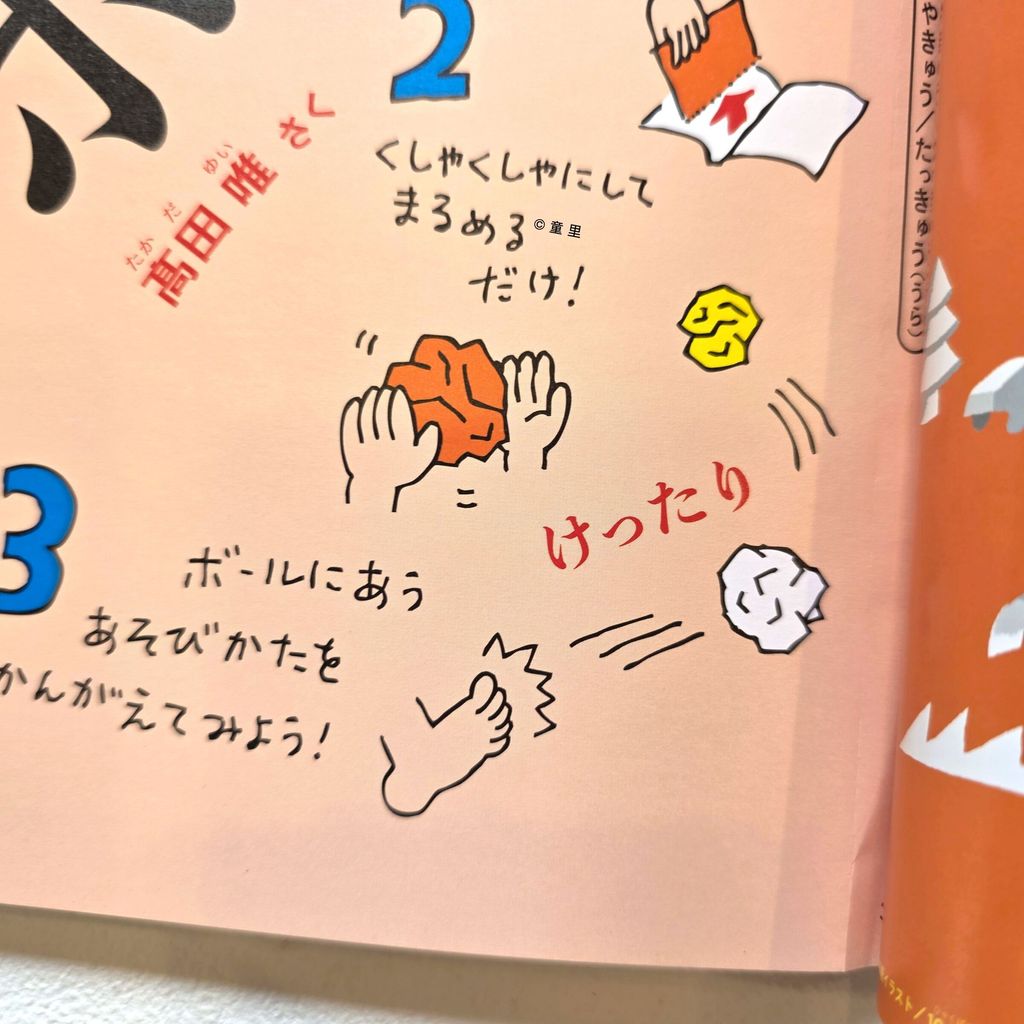 2
くしゃくしゃにして
まるめる
だけ！
©童里
たかだ ゆい
髙田 唯 さく
けったり
3
ボールにあう
あそびかたを
かんがえてみよう！
やきゅう／たっきゅう（うら）
イラスト／